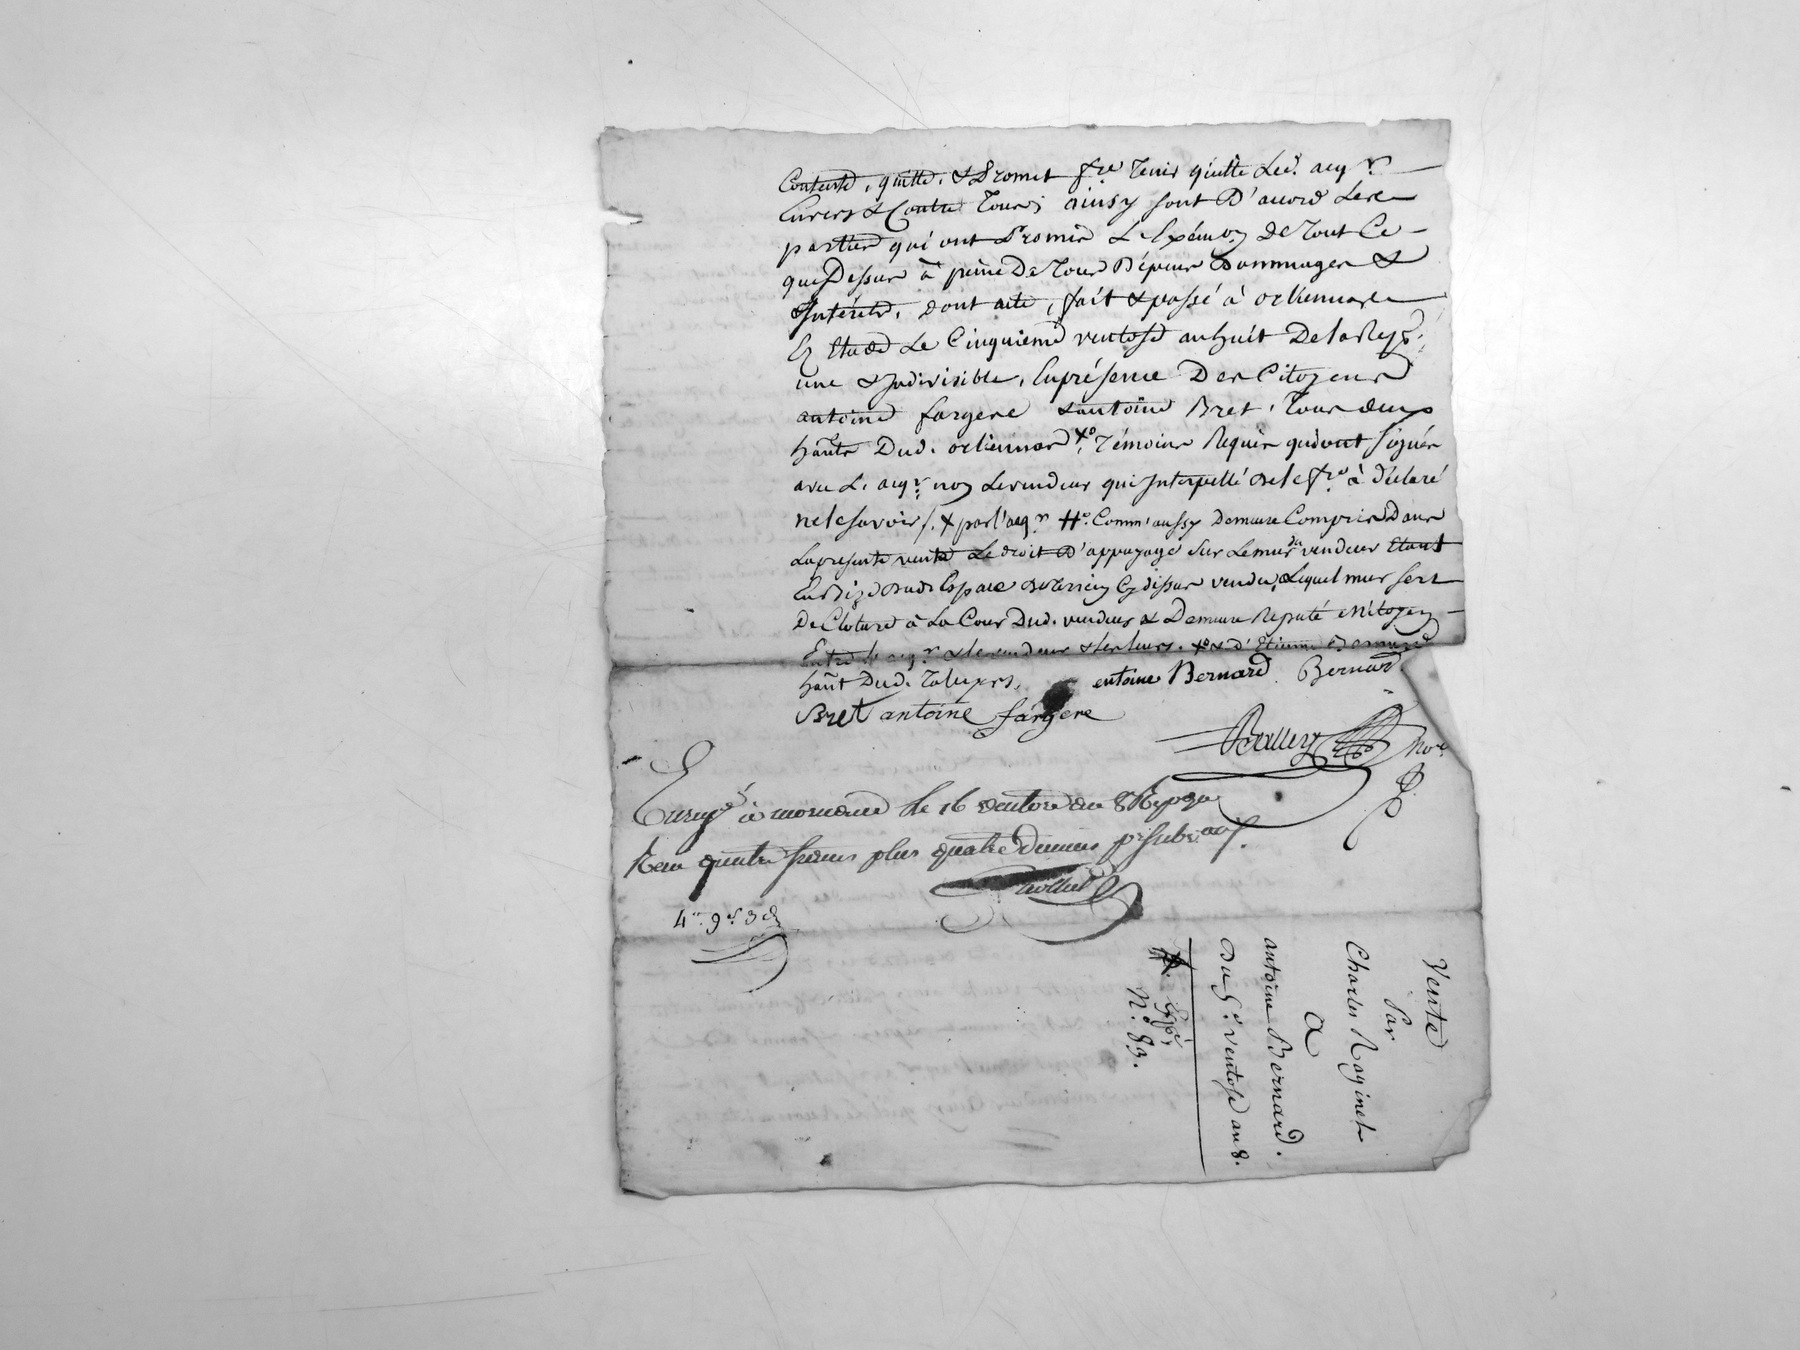 Contente, quitte, & Promet f.re tenir quitte Led. acqr.
Envers & Contre Tous; ainsy sont D'accord Les
parties qui ont Promis L'Exécuon. De Tout Ce
que Dessus à peine De Tous Dépens Dommages &
Intérêts, dont acte, fait & passé à orliennas
Le Cinquieme ventose an huit De la Rep.
une & Indivisible, En présence Des Citoyens
antoine fargere & antoine Bret, Tous deux
hants Dud. orliennas xo, Témoins Requis qui ont signés
avec L. acqr. non Le vendeur qui Interpellé de le f.re à déclaré
ne le savoir /. x par l'acqr. #o. Comm'aussy Demeure Compris Dans
La presente vente Le droit D'appuyage sur Le mur du vendeur Etant
Espace cy dessus vendu, Lequel mur sert
De Cloture à La Cour Dud. vendeur & Demeure Reputé Mitoyen
Entre L. acqr. & le vendeur & les leurs. xo & d'Etienne Bernard
hant Dud. Taluyers.  entoine Bernard  Bernard
Bret antoine fargere
Nore
à mornant le 16 ventose an 8
Reçu quatre francs plus quatre Decimes pr. subvon.
4 9 3
Vente
Par
Charles Raginet
A
antoine Bernard.
Du 5e. ventose an 8.
Expé
No. 83.